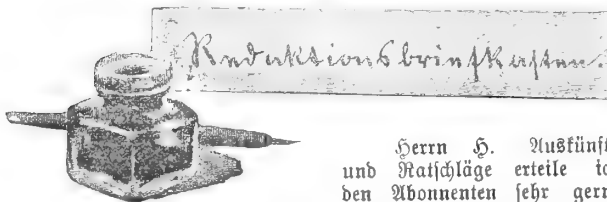 Redaktionsbriefkasten.
Herrn H. Auskünft
und Ratschläge erteile ic
den Abonnenten sehr gern